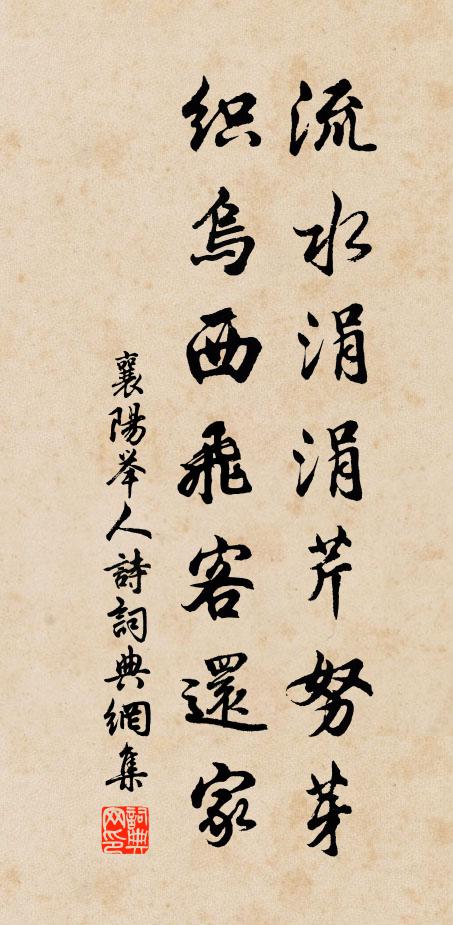 流水涓涓芹努芽
织乌西飛客還家
襄陽举人詩詞典網集
詞典网印